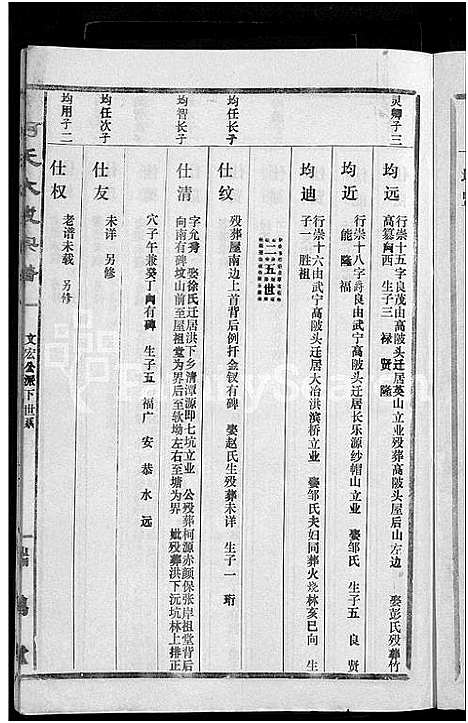 灵卿子三
均远
行崇十五字良茂由高陂头迁居英山立业殁葬高陂头屋后山左边 娶彭氏殁葬竹
高墓向西 生子三 禄 贤 隆
均近
行崇十八字爵良由武宁高陂头迁居长乐源纱帽山立业 娶邹氏 生子五 良 贤
能 隆 福
均迪
行崇十六由武宁高陂头迁居大冶洪滨桥立业 娶邹氏夫妇同葬火烧林亥巳向 生
子一 胜祖
二十五世
均任长子
仕纹
殁葬屋南边上首背后倒扦金钗有碑 娶赵氏生殁葬未详 生子一 珩
均智长子
仕清
字允秀 娶徐氏迁居洪下乡清潭源即七坑立业 公殁葬柯源赤颜保张岸祖堂背后
向南有碑坟山前至屋祖堂为界后至软坳左右至塘为界 妣殁葬洪下沉坑林上排正
穴子午兼癸丁向有碑 生子五 福 广 安 恭 水 远
均任次子
仕友
未详 另修
均用子二
仕权
老谱未载 另修
文宏公派下世系